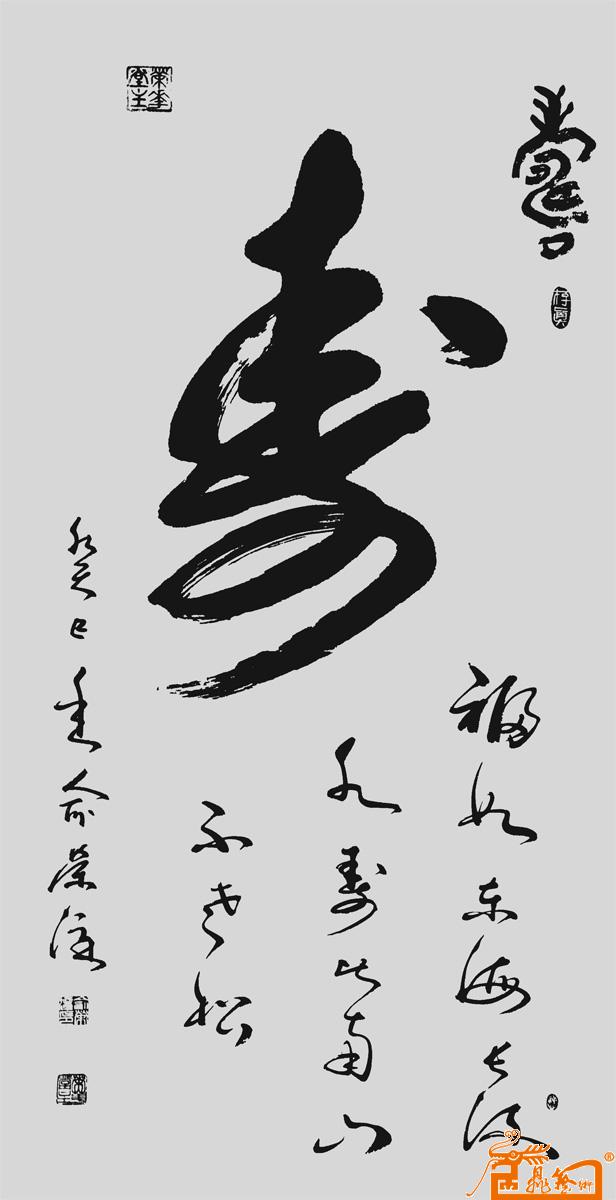 壽
寿
福如东海长流
水寿比南山
不老松
癸巳年俞荣